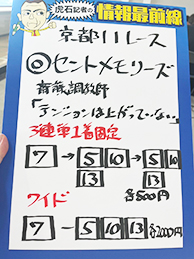 虎石記者の情報最前線
京都11レース
◎セントメモリーズ
斎藤調教師
「テンションは上がっていない」
3種単1着固定
7→5 10→5 10
13 13
各500円
ワイド
7-5 10 13 各2000円